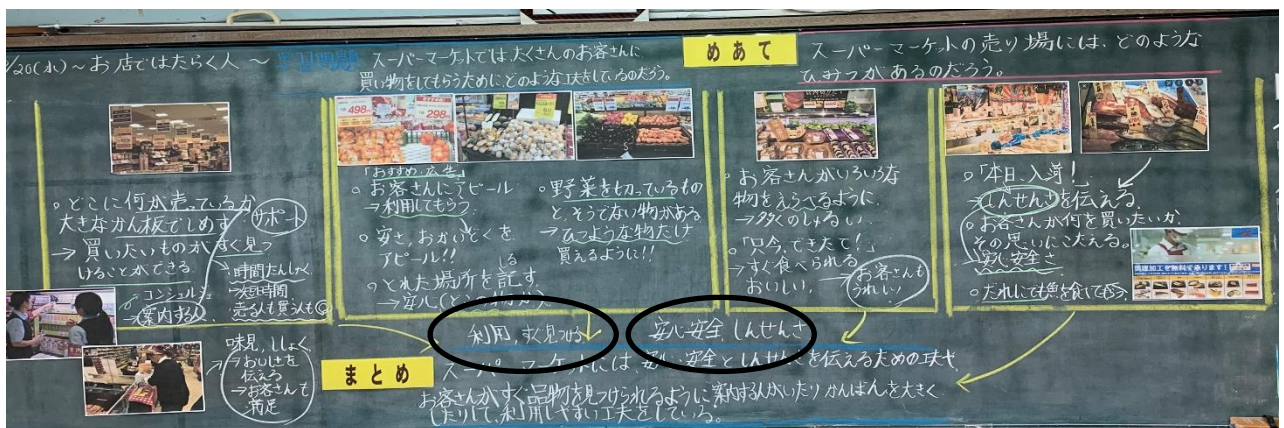 /20(水)～お店ではたらく人～
スーパーマーケットでは、たくさんのお客さんに
買い物をしてもらうために、どのような工夫をしているのだろう。
めあて
スーパーマーケットの売り場には、どのような
ひみつがあるのだろう。
。どこに何が売っているか
大きなかん板でしめす
→買いたいものがすぐ見つ
けることができる
サポート
。コンシェルジュ
→案内する人
→時間たんしゅく
→短時間
売る人も買う人も
味見、ししょく
→おいしさを
伝える
→お客さんも
満足
498
298
「おすすめ、広告」
。お客さんにアピール
→利用してもらう
。安さ、おかいどくを
アピール!!
。とれた場所を記す
しる
→安心
。野菜を切っているもの
と、そうでない物がある
→ひつような物だけ
買えるように!!
。お客さんがいろいろな
物をえらべるように
→多くのしゅるい
。「只今、できたて!」
→すぐ食べられる
おいしい、
→お客さんも
うれしい!
。「本日、入荷!」
→しんせんさを伝える
。お客さんが何を買いたいか、
その思いにこたえる。
安心安全さ
調理加工を無料で承ります!
利用、すぐ見つける
安心・安全、しんせんさ
まとめ
スーパーマーケットには、安心、安全としんせんさを伝えるための工夫や、
お客さんがすぐ品物を見つけられるように案内する人がいたりかんばんを大きく
したりして、利用しやすい工夫をしている。